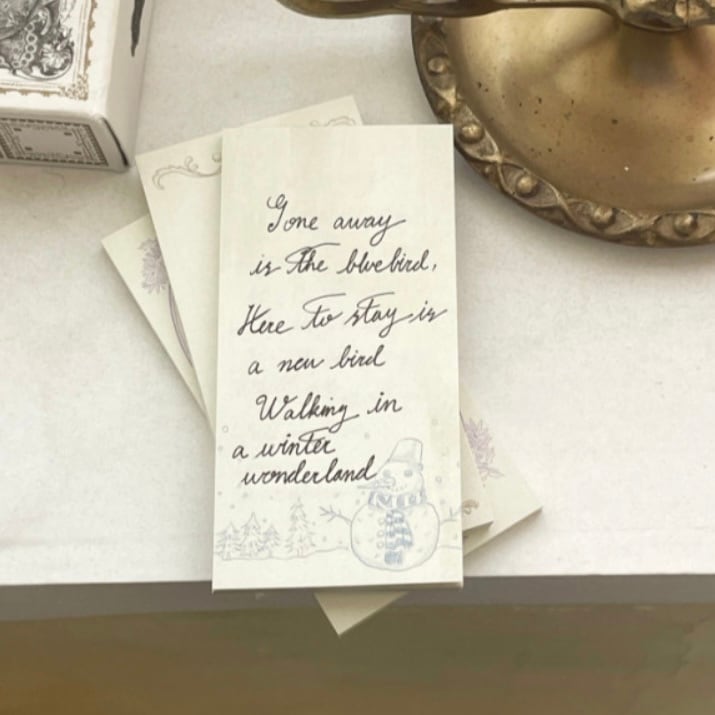 Gone away
is the bluebird,
Here to stay is
a new bird
Walking in
a winter
wonderland